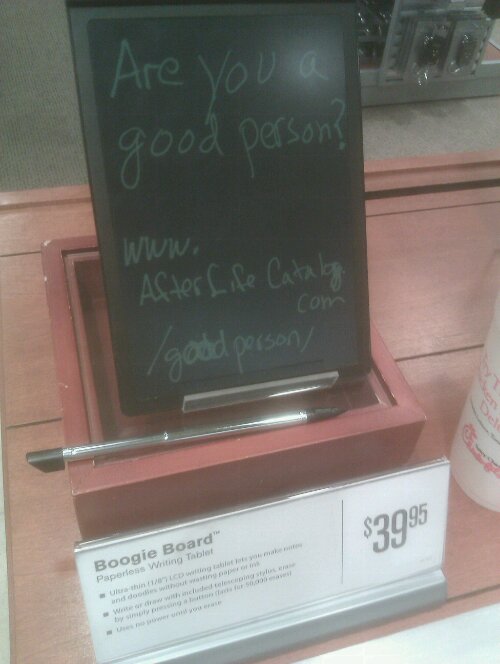 Are you a
good person?
www.
AfterLife Catalog.
com
/good person/
Boogie Board™
Paperless Writing Tablet
Ultra-thin (1/8") LCD writing tablet lets you make notes
and doodles without wasting paper or ink
Write or draw with included telescoping stylus, erase
by simply pressing a button (lasts for 50,000 erases)
Uses no power until you erase
$3995